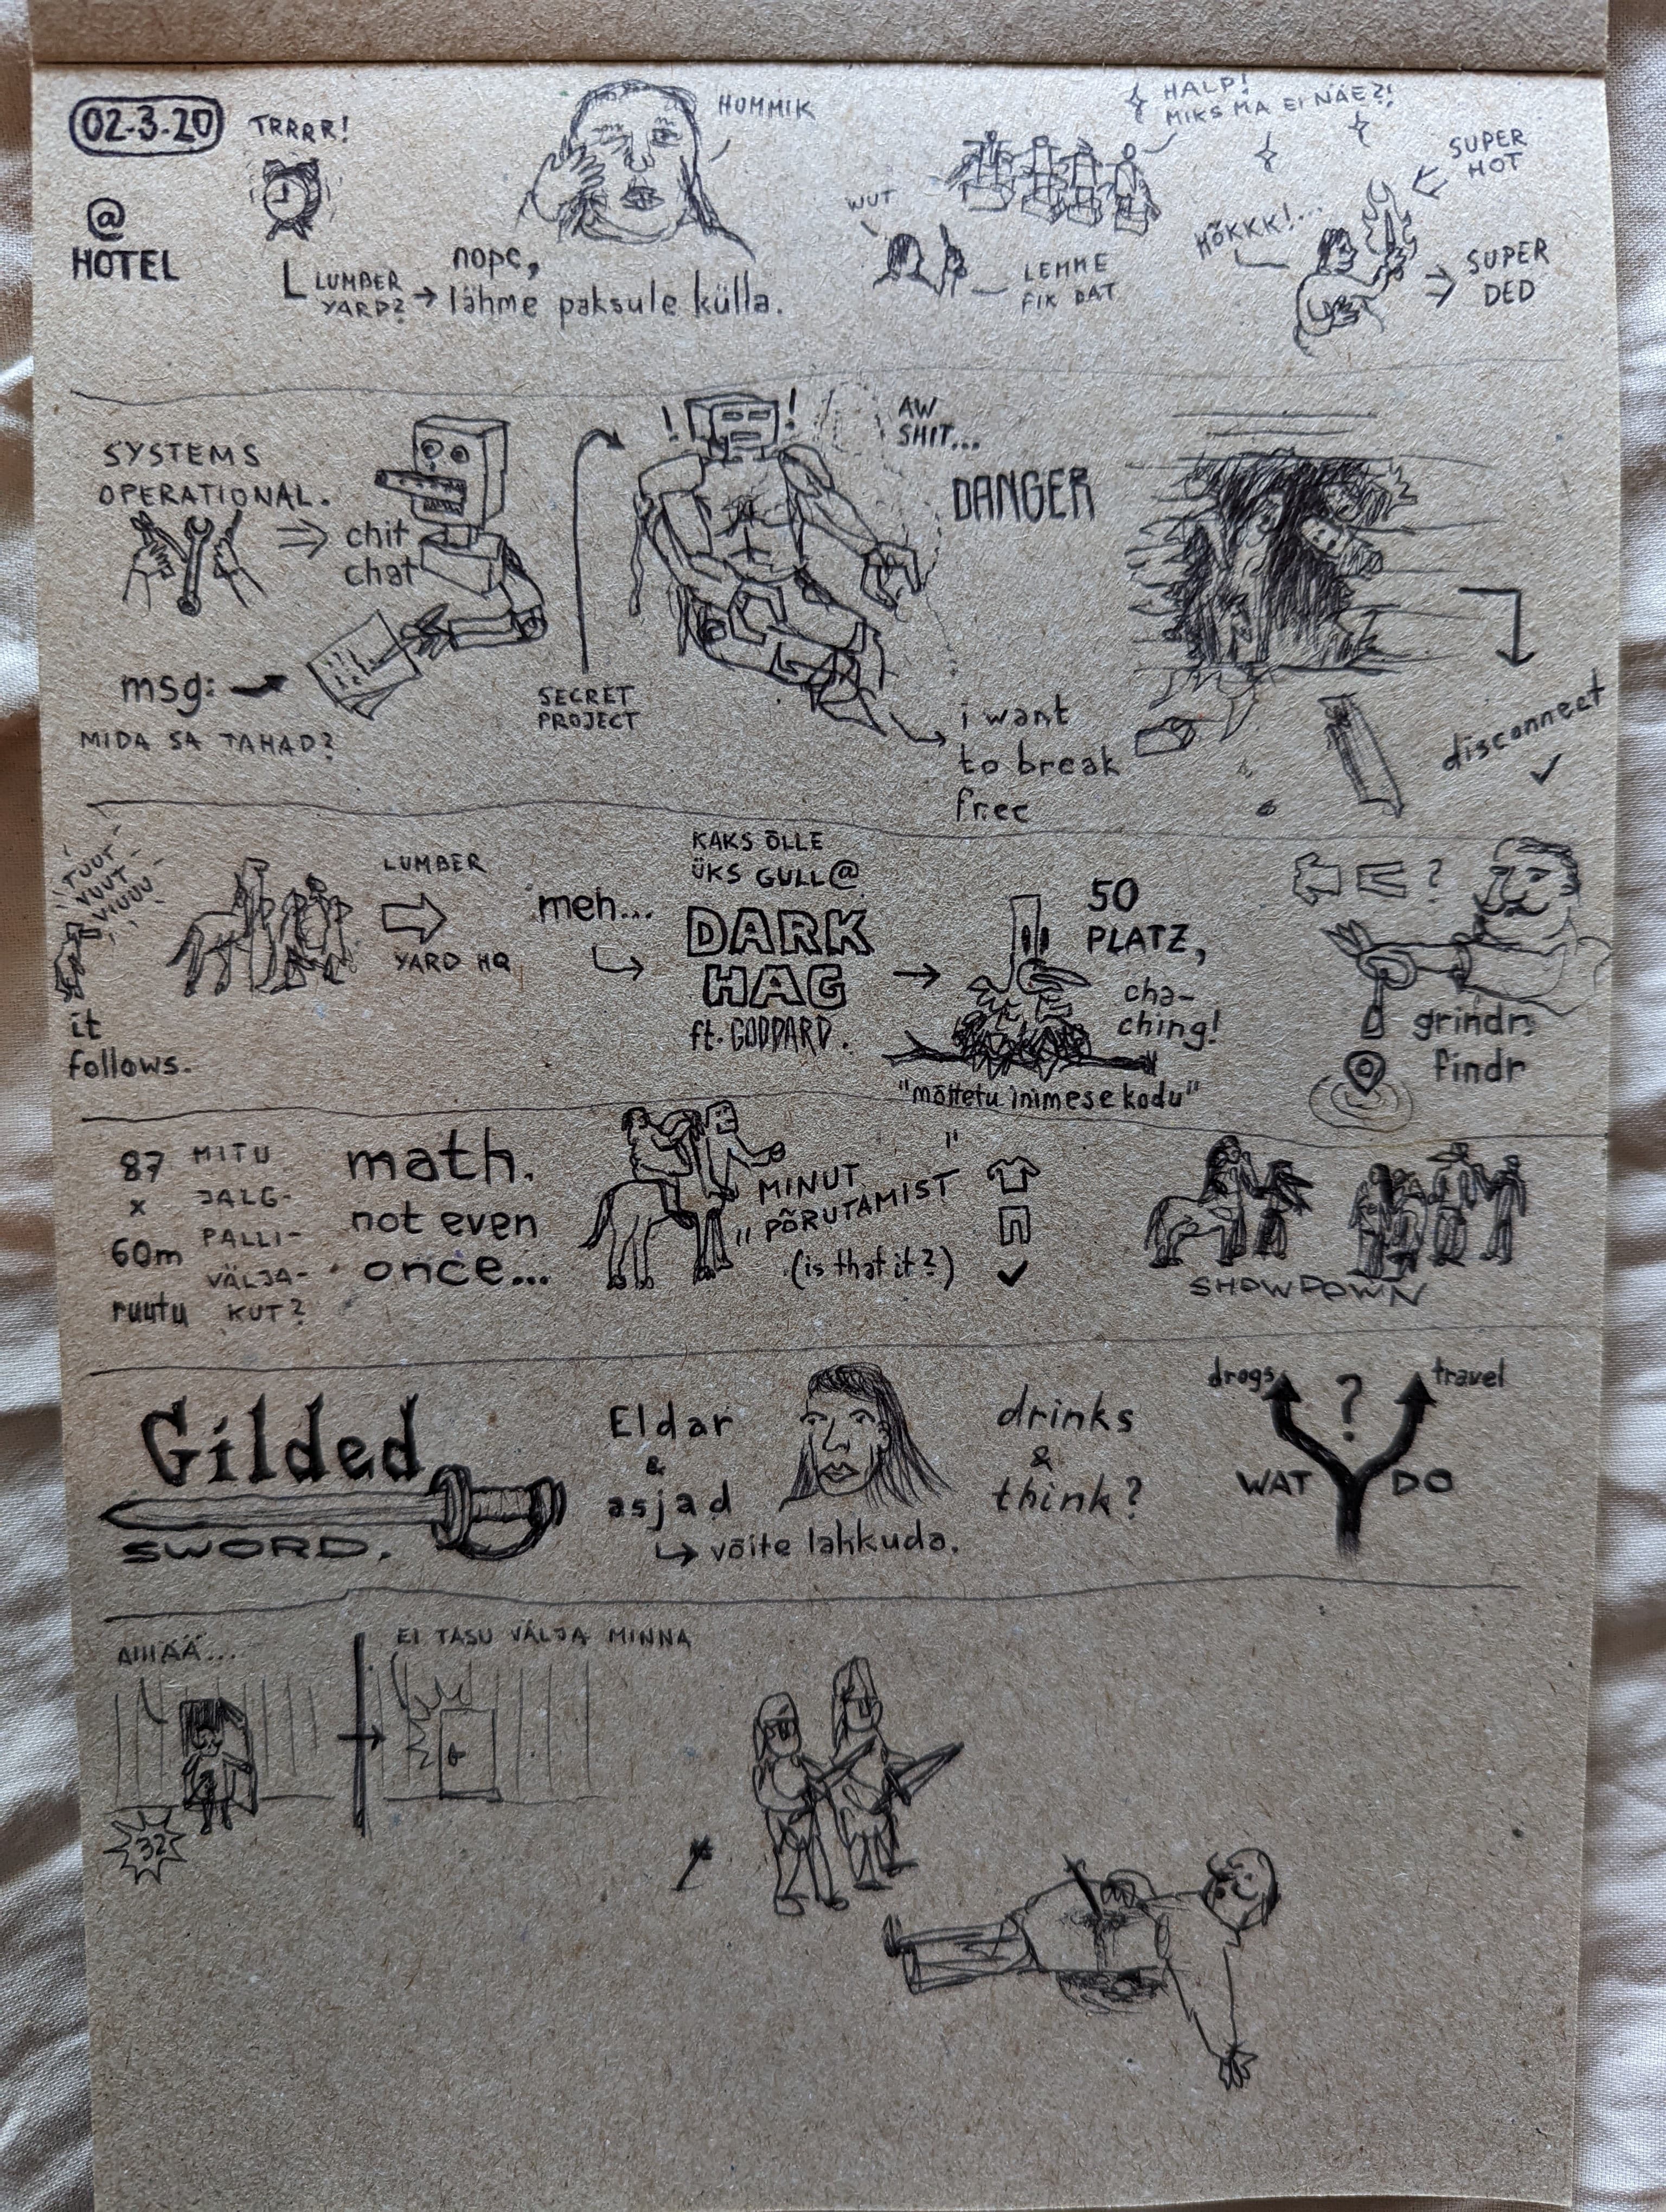 02.3.20
TRRRR!
HOMMIK
HALP!
MIKS MA EI NÄE?!
@
HOTEL
WUT
LEMME
FIX DAT
HÕKKK!...
SUPER
HOT
SUPER
DED
LUMBER
YARD?
nope,
lähme paksule külla.
SYSTEMS
OPERATIONAL.
chit
chat
msg:
MIDA SA TAHAD?
SECRET
PROJECT
! !
AW
SHIT...
DANGER
i want
to break
free
disconnect
TUUT
VUUT
VIUUU
it
follows.
LUMBER
YARD HQ
meh...
KAKS ÕLLE
ÜKS GULL@
DARK
HAG
ft. GODDARD.
50
PLATZ,
cha-
ching!
"mõttetu inimese kodu"
?
grindr
findr
87
x
60m
ruutu
MITU
JALG-
PALLI-
VÄLJA-
KUT?
math.
not even
once...
MINUT
"PÕRUTAMIST"
(is that it?)
SHOWDOWN
Gilded
SWORD.
Eldar
&
asjad
võite lahkuda.
drinks
&
think?
drogs
?
travel
WAT DO
AIIIÄÄ...
32
EI TASU VÄLJA MINNA